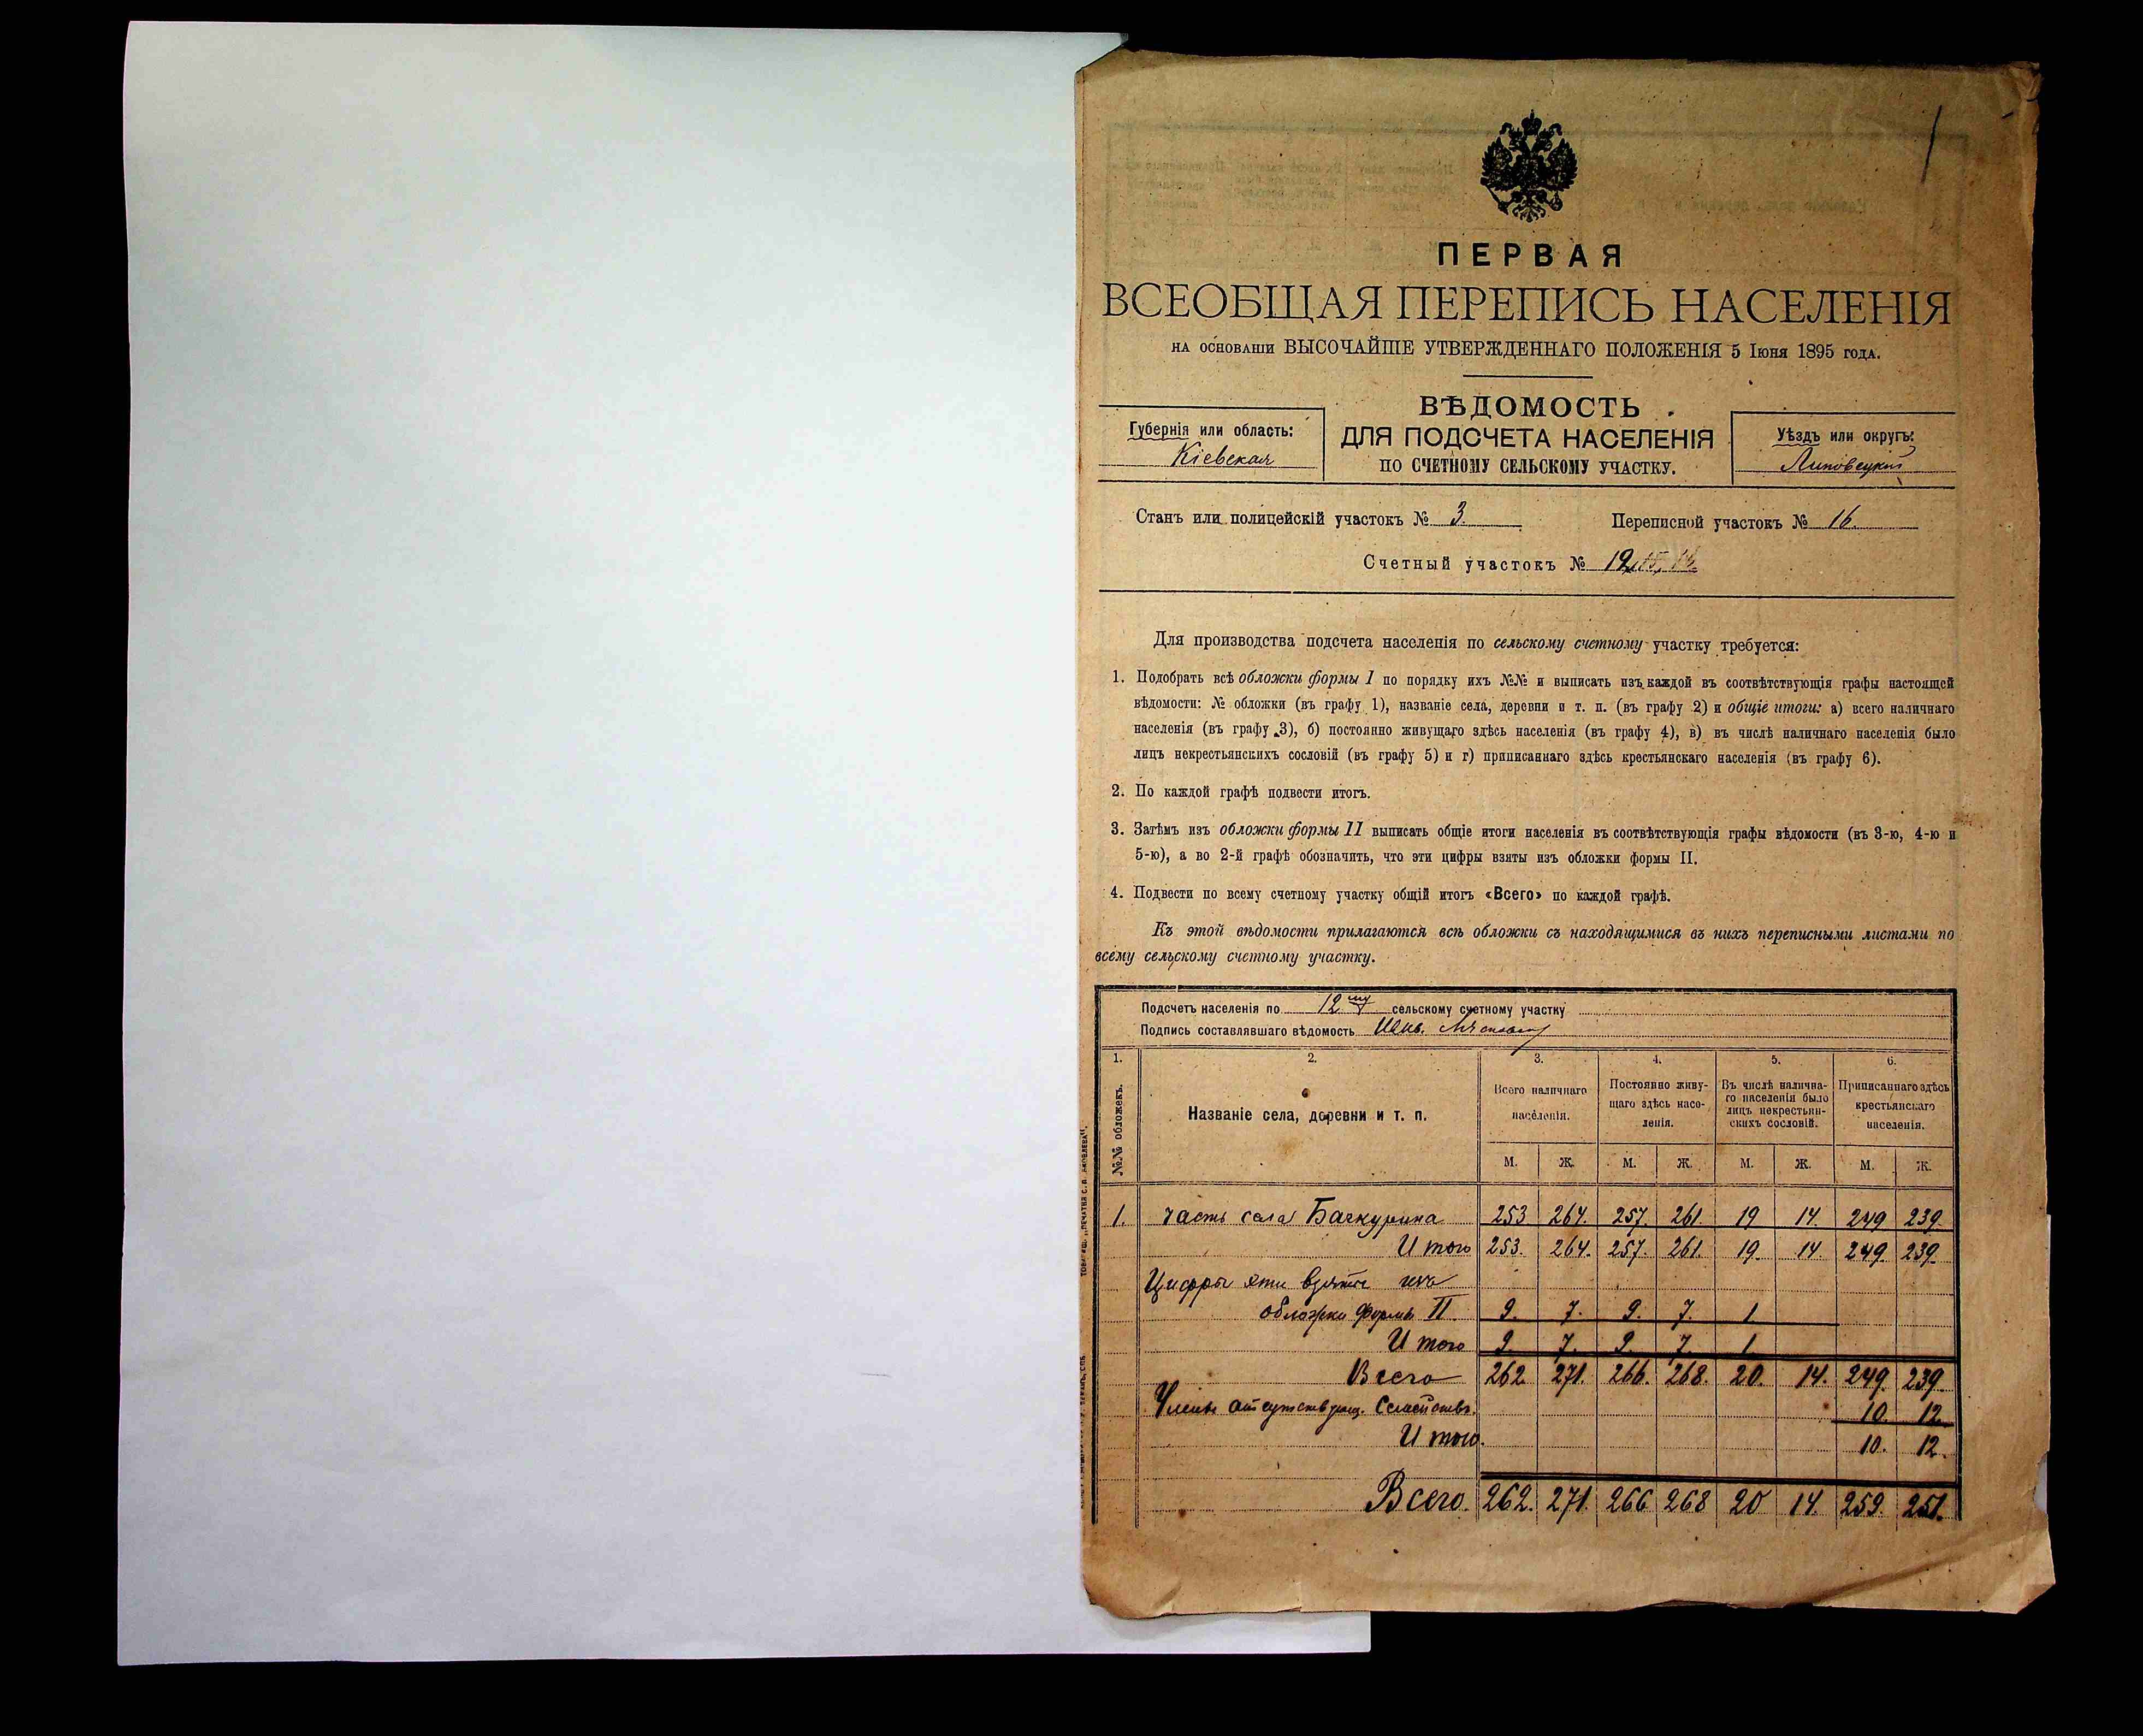 ПЕРВАЯ
ВСЕОБЩАЯ ПЕРЕПИСЬ НАСЕЛЕНІЯ
НА ОСНОВАНІИ ВЫСОЧАЙШЕ УТВЕРЖДЕННАГО ПОЛОЖЕНІЯ 5 Іюня 1895 ГОДА.
ВѢДОМОСТЬ
ДЛЯ ПОДСЧЕТА НАСЕЛЕНІЯ
ПО СЧЕТНОМУ СЕЛЬСКОМУ УЧАСТКУ.
Губернія или область:
Кіевская
Уѣздъ или округъ:
Липовецкій
Станъ или полицейскій участокъ № 3. Переписной участокъ № 16
Счетный участокъ № 12
Для производства подсчета населенія по сельскому счетному участку требуется:
1. Подобрать всѣ обложки формы I по порядку ихъ №№ и выписать изъ каждой въ соотвѣтствующія графы настоящей
вѣдомости: № обложки (въ графу 1), названіе села, деревни и т. п. (въ графу 2) и общіе итоги: а) всего наличнаго
населенія (въ графу 3), б) постоянно живущаго здѣсь населенія (въ графу 4), в) въ числѣ наличнаго населенія было
лицъ некрестьянскихъ сословій (въ графу 5) и г) приписаннаго здѣсь крестьянскаго населенія (въ графу 6).
2. По каждой графѣ подвести итогъ.
3. Затѣмъ изъ обложки формы II выписать общіе итоги населенія въ соотвѣтствующія графы вѣдомости (въ 3-ю, 4-ю и
5-ю), а во 2-й графѣ обозначить, что эти цифры взяты изъ обложки формы II.
4. Подвести по всему счетному участку общій итогъ «Всего» по каждой графѣ.
Къ этой вѣдомости прилагаются всѣ обложки съ находящимися въ нихъ переписными листами по
всему сельскому счетному участку.
Подсчетъ населенія по 12му сельскому счетному участку
Подпись составлявшаго вѣдомость
1. 2. 3. 4. 5. 6.
№№ обложекъ.
Названіе села, деревни и т. п.
Всего наличнаго
населенія.
Постоянно живу-
щаго здѣсь насе-
ленія.
Въ числѣ налична-
го населенія было
лицъ некрестьян-
скихъ сословій.
Приписаннаго здѣсь
крестьянскаго
населенія.
М. Ж. М. Ж. М. Ж. М. Ж.
1. Часть села Бачкурина 253 264. 257. 261. 19 14. 249 239.
Итого 253. 264. 257. 261. 19. 14. 249. 239.
Цифры эти взяты изъ
обложки формы II. 9. 7. 9. 7. 1
Итого 9. 7. 9. 7. 1
Всего 262. 271. 266. 268. 20. 14. 249. 239.
Члены отсутствующ. Семействъ. 10. 12.
Итого. 10. 12.
Всего. 262. 271. 266 268 20 14. 259. 251.